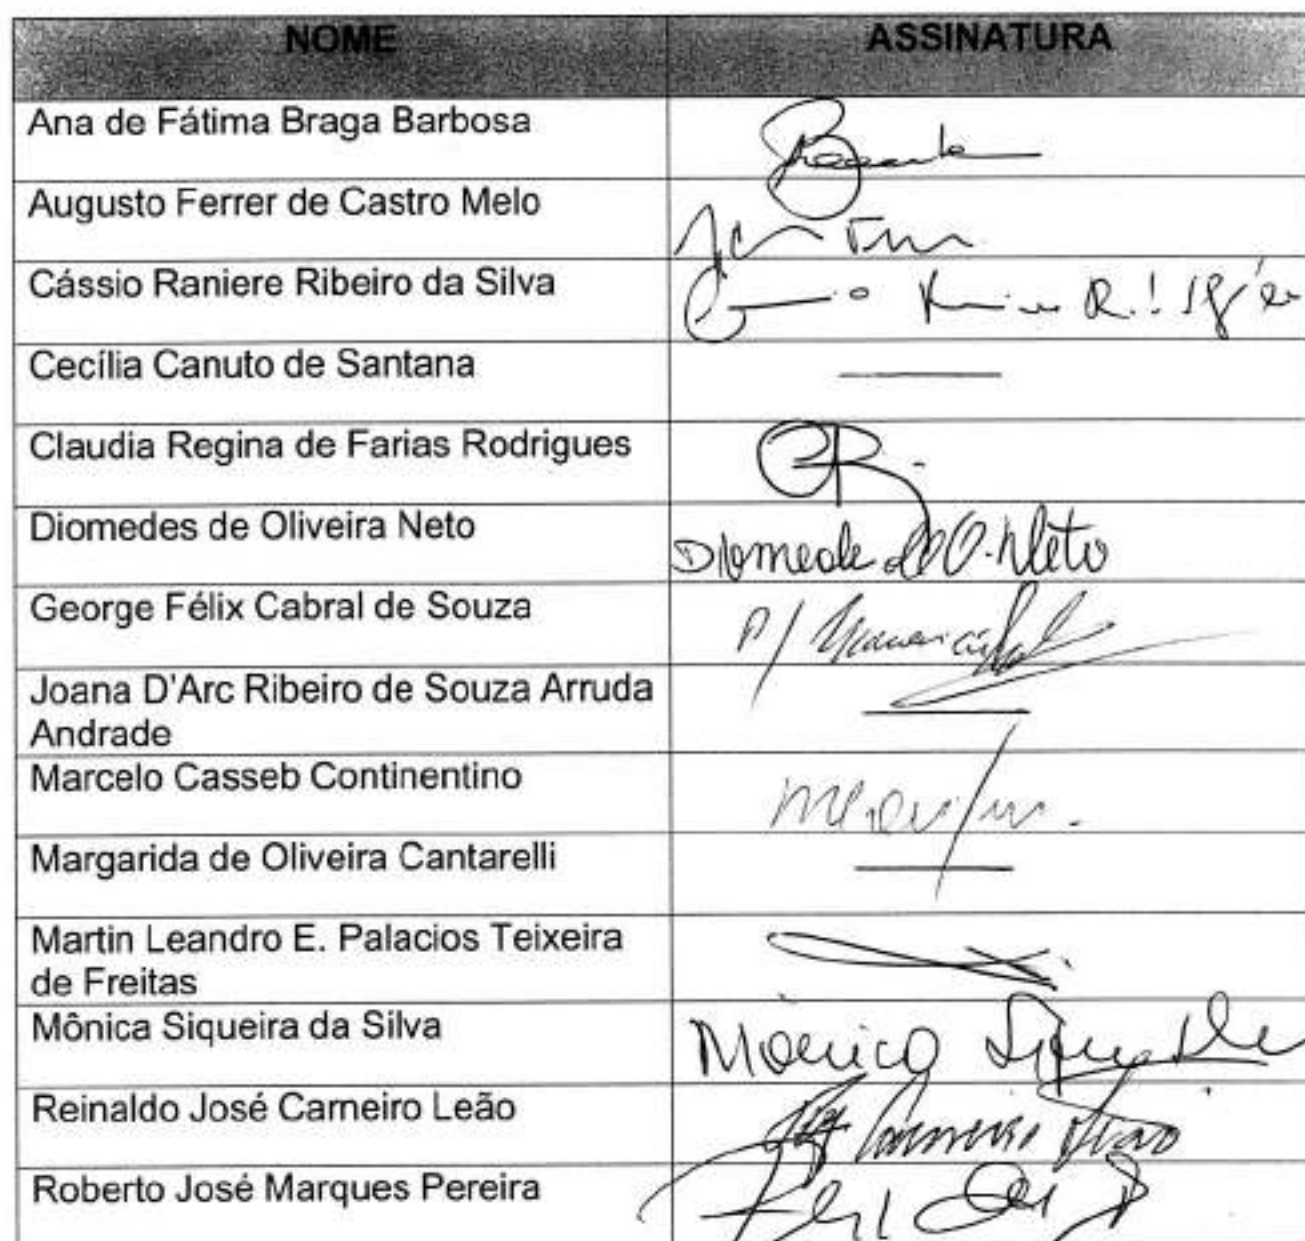 NOME ASSINATURA
Ana de Fátima Braga Barbosa
Augusto Ferrer de Castro Melo
Cássio Raniere Ribeiro da Silva
Cecília Canuto de Santana
Claudia Regina de Farias Rodrigues
Diomedes de Oliveira Neto Diomede de O. Neto
George Félix Cabral de Souza P/
Joana D'Arc Ribeiro de Souza Arruda
Andrade
Marcelo Casseb Continentino
Margarida de Oliveira Cantarelli
Martin Leandro E. Palacios Teixeira
de Freitas
Mônica Siqueira da Silva Mônica
Reinaldo José Carneiro Leão Carneiro Leão
Roberto José Marques Pereira